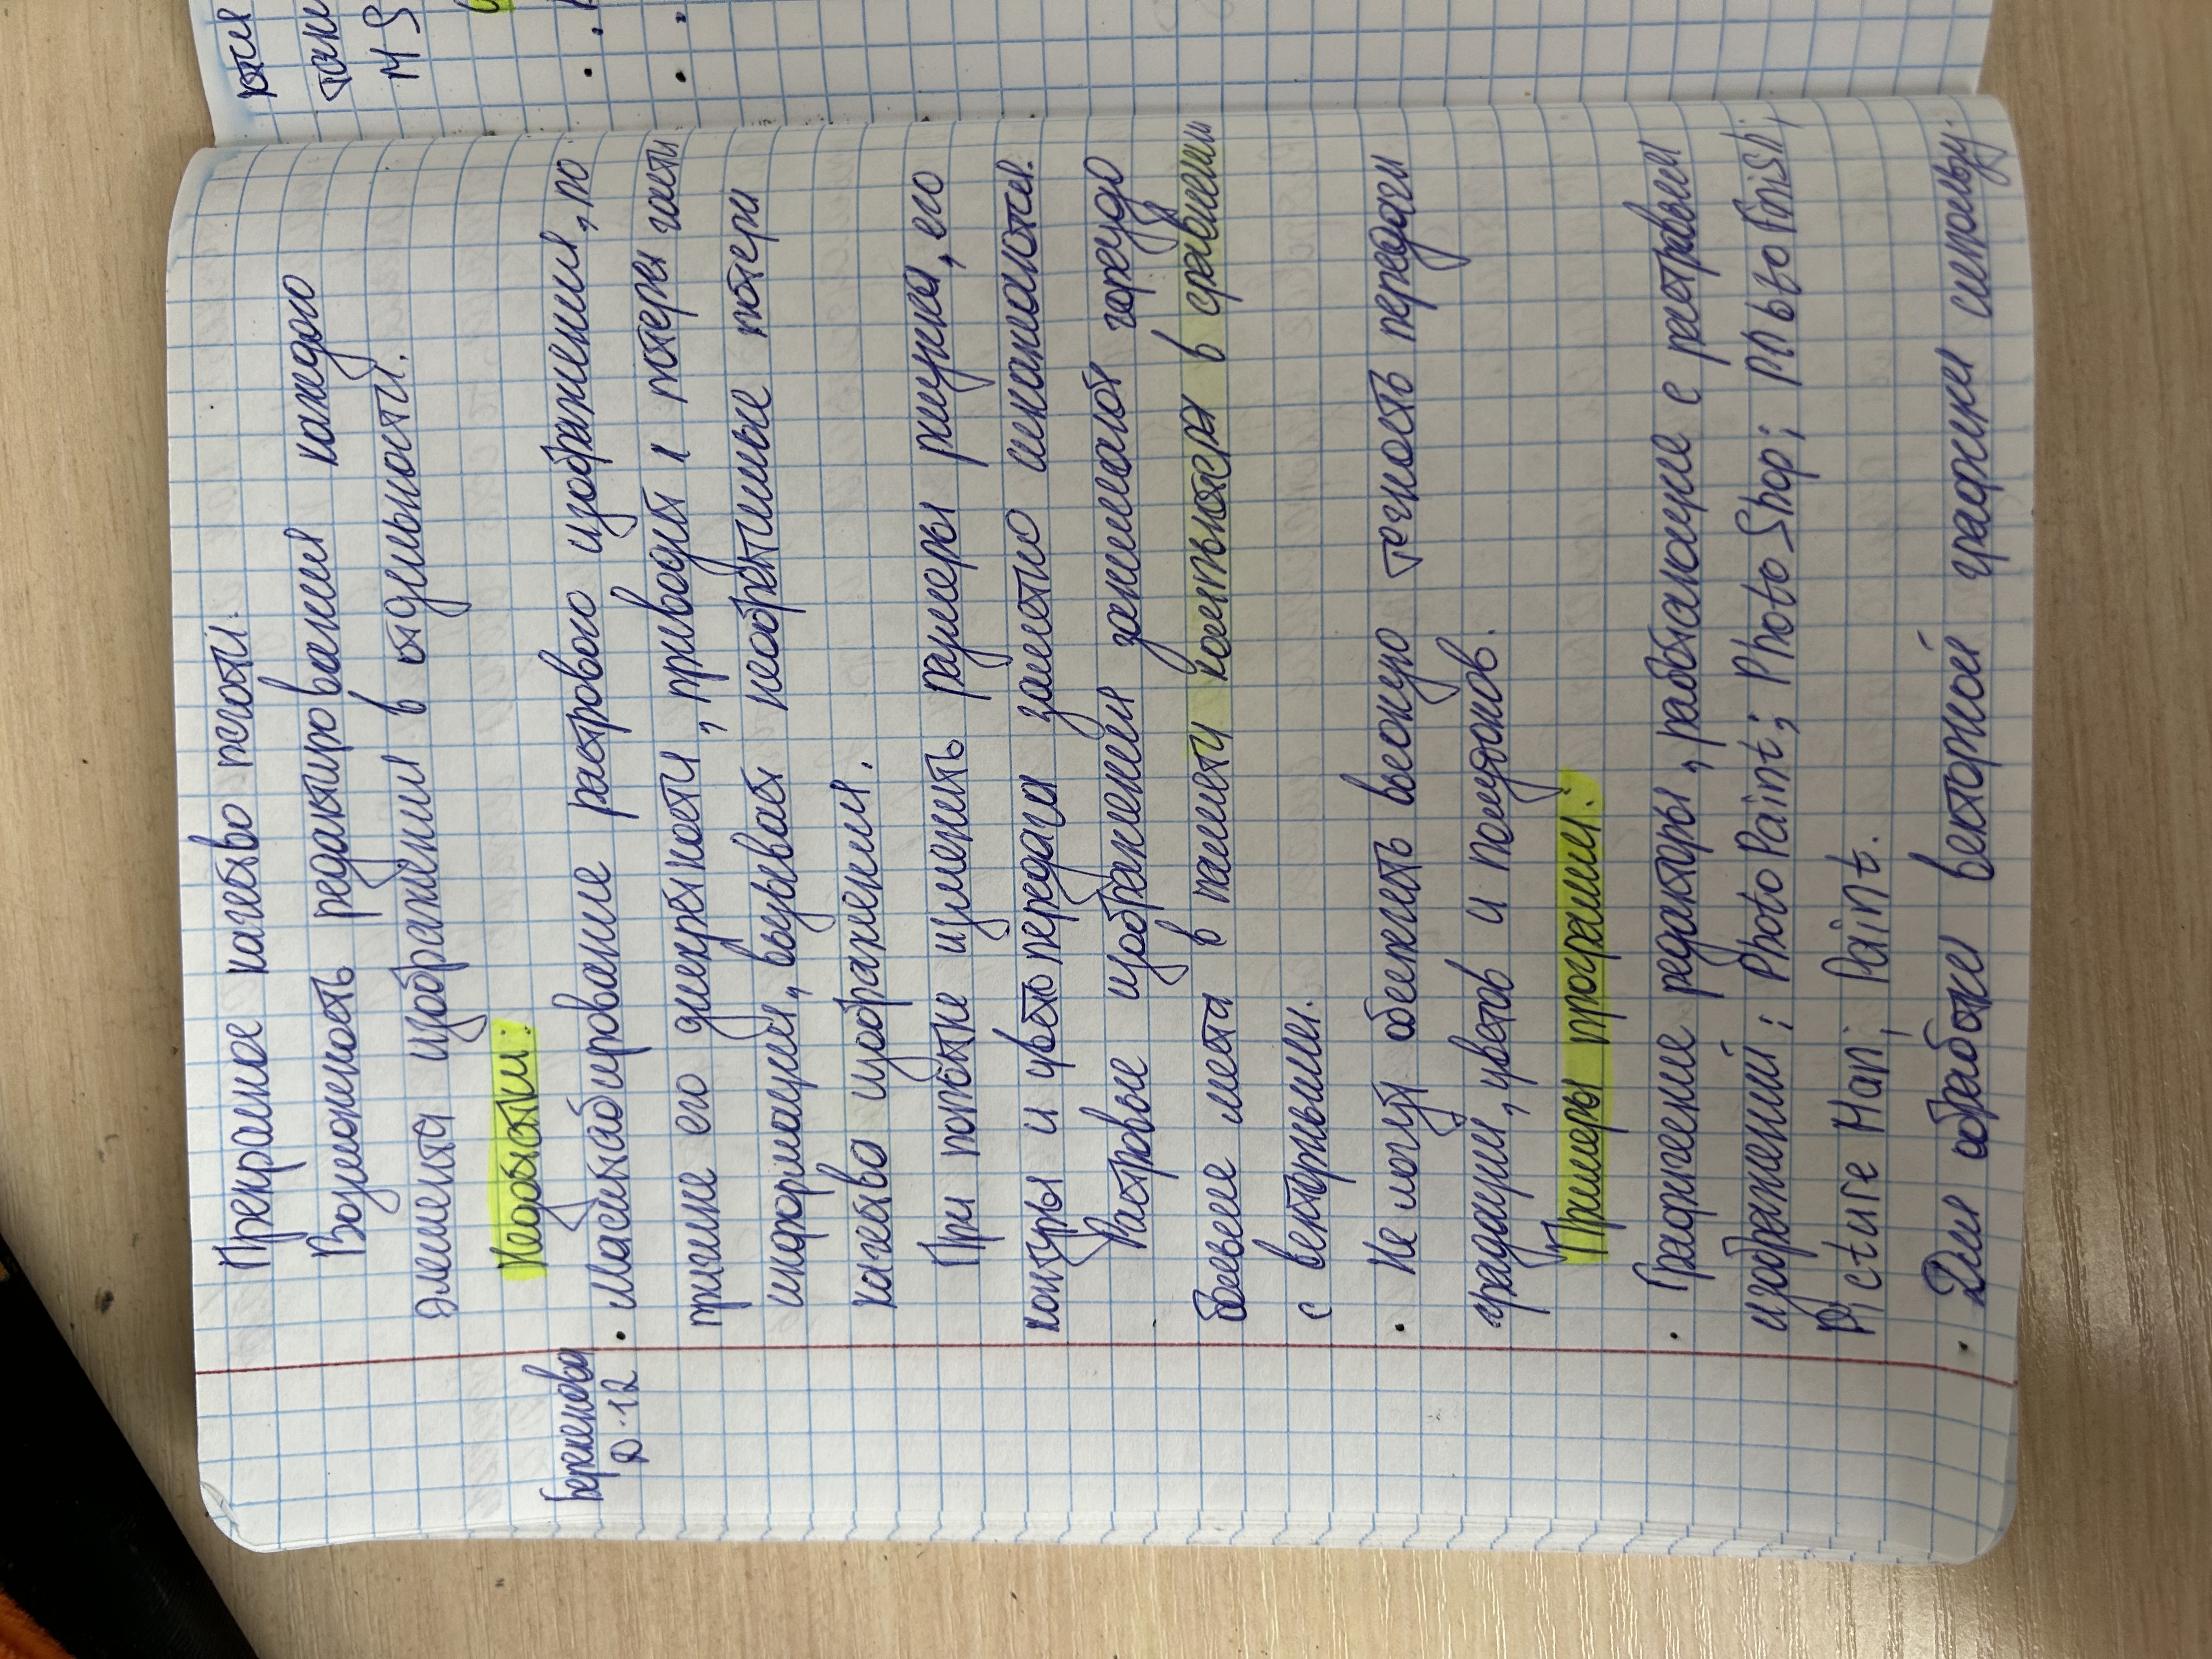 Прекрасное качество печати.
Возможность редактирования каждого
элемента изображения в отдельности.
Недостатки:
Беркенова
D-12
• Масштабирование растрового изображения, по
причине его дискретности, приводит к потере части
информации, вызывает необратимые потери
качества изображения.
При попытке изменить размеры рисунка, его
контуры и цветопередача заметно искажаются.
Растровые изображения занимают гораздо
больше места в памяти компьютера в сравнении
с векторными.
• Не могут обеспечить высокую точность передачи
градации, цветов и полутонов.
Примеры программ:
• Графические редакторы, работающие с растровыми
изображений: PhotoPaint; PhotoShop; Finish;
Picture Man; Paint.
• Для обработки векторной графики использу-
ются
M S